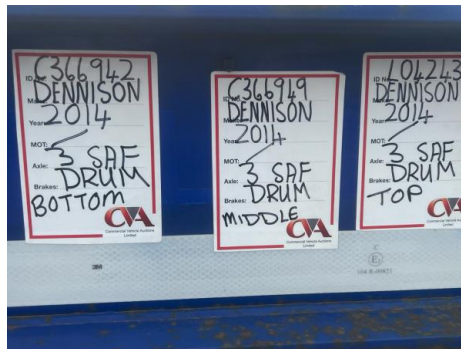 ID No: C366942
Make: DENNISON
Year: 2014
MOT: /
Axle: 3 SAF
Brakes: DRUM
BOTTOM
CVA
Commercial Vehicle Auctions
Limited
C366949
DENNISON
Year: 2014
MOT: /
Axle: 3 SAF
Brakes: DRUM
MIDDLE
CVA
Commercial Vehicle Auctions
Limited
ID No: L04243
DENNISON
Year: 2014
MOT: /
Axle: 3 SAF
Brakes: DRUM
TOP
CVA
Commercial Vehicle Auctions
Limited